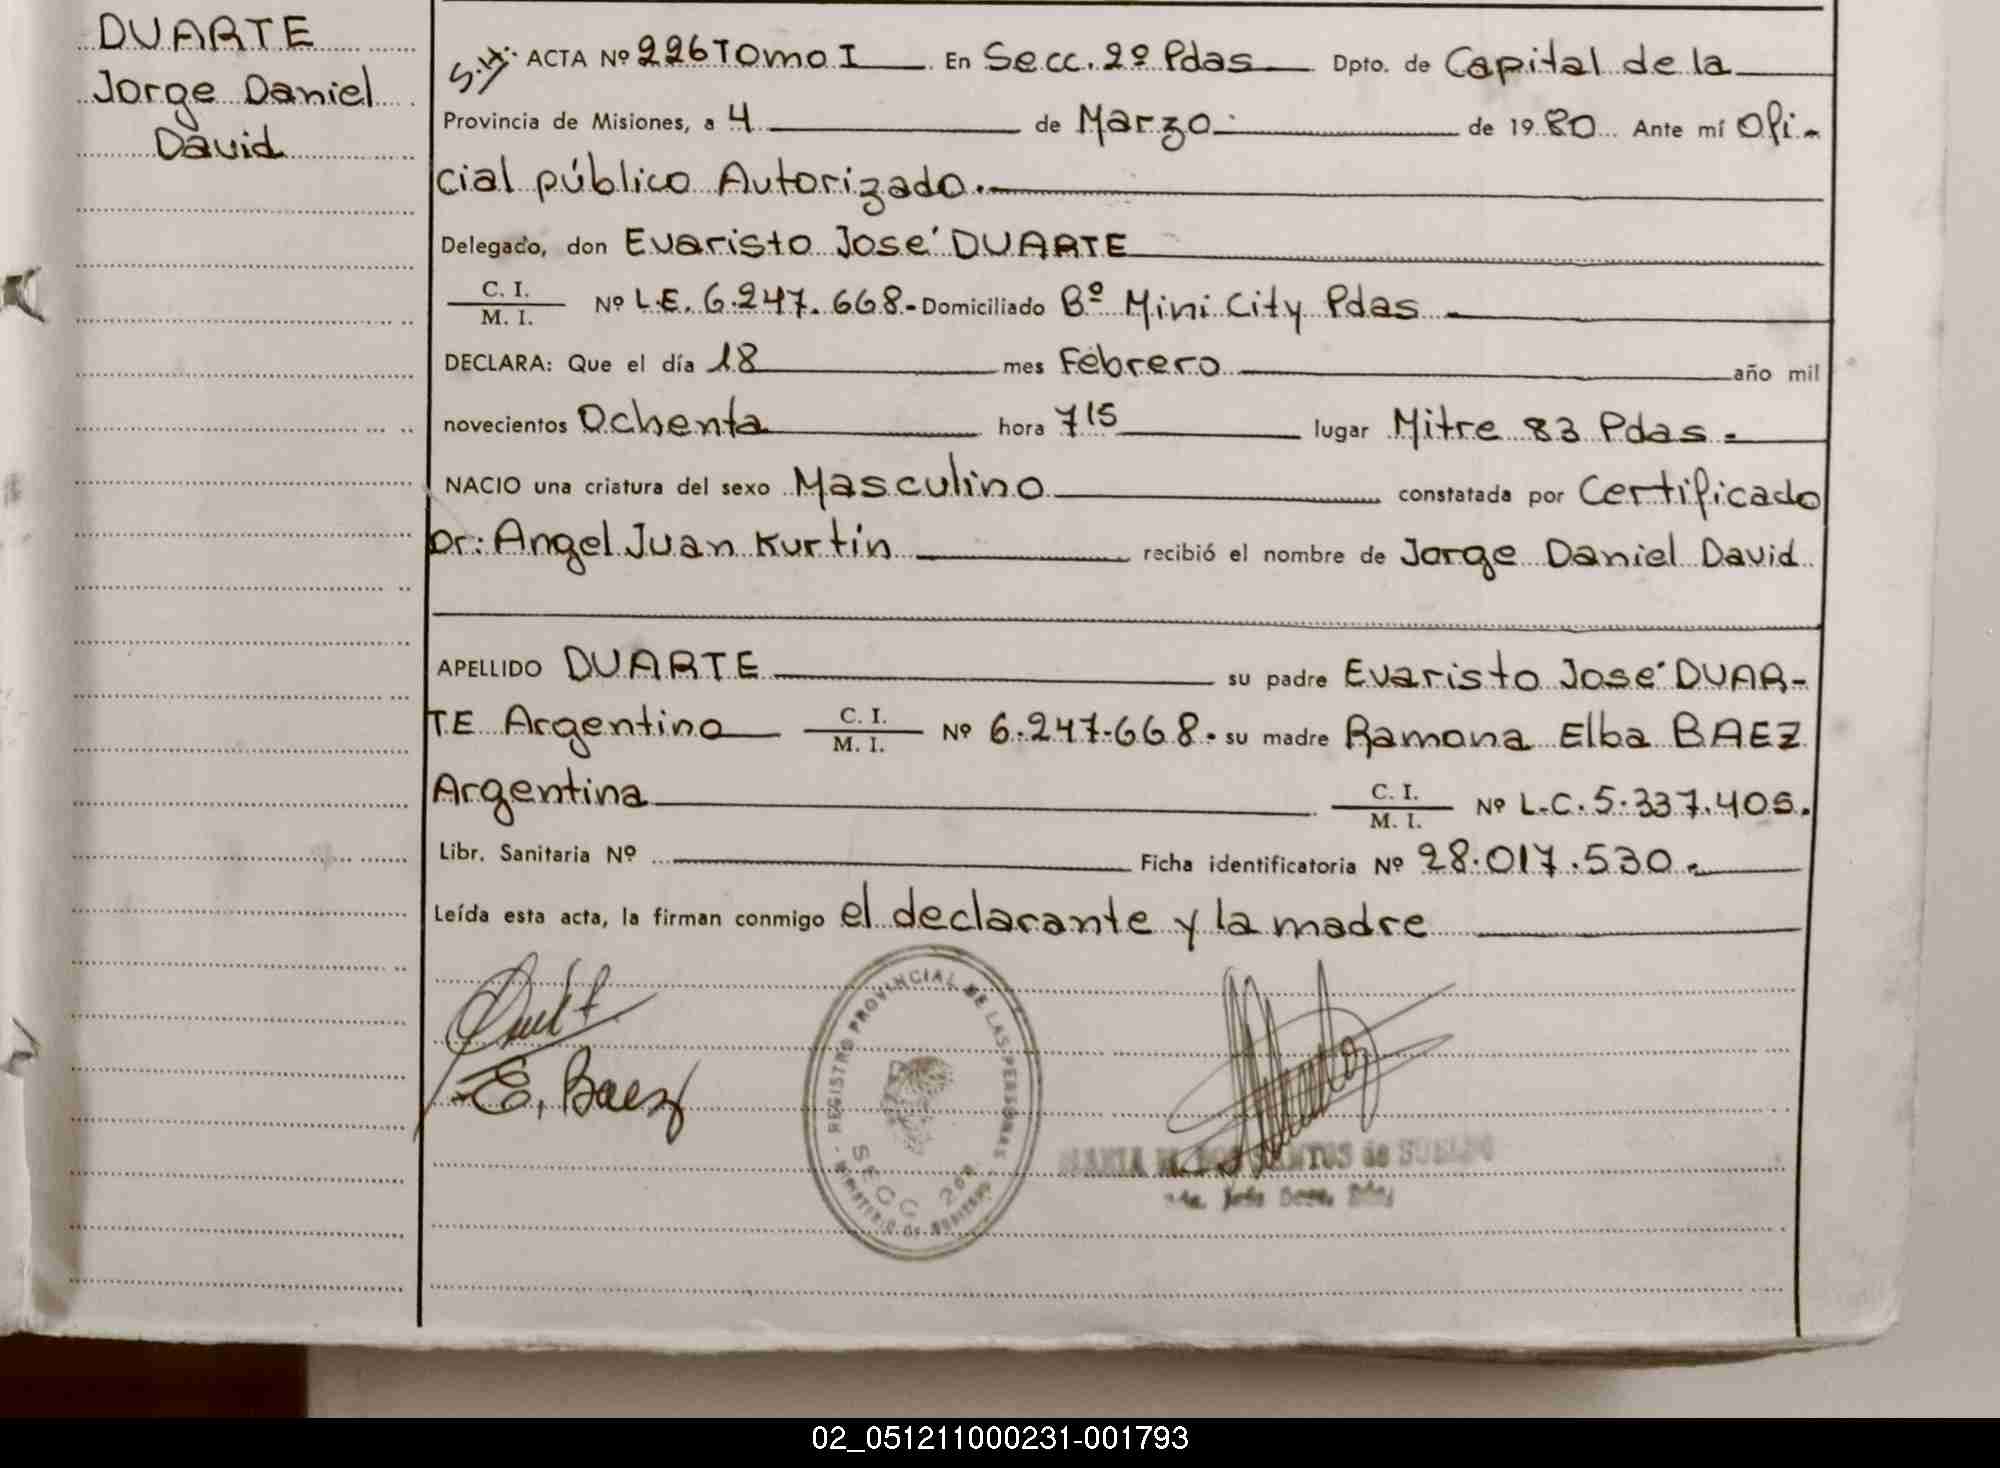 DUARTE
Jorge Daniel
David
ACTA Nº 226 Tomo I En Secc. 2º Pdas Dpto. de Capital de la
Provincia de Misiones, a 4 de Marzo de 1980 Ante mí Ofi-
cial público Autorizado.
Delegado, don Evaristo José DUARTE
C. I.
M. I.
Nº L.E. 6.247.668- Domiciliado Bº Mini City Pdas
DECLARA: Que el día 18 mes Febrero año mil
novecientos Ochenta hora 715 lugar Mitre 83 Pdas-
NACIO una criatura del sexo Masculino constatada por Certificado
Dr: Angel Juan Kurtin recibió el nombre de Jorge Daniel David
APELLIDO DUARTE su padre Evaristo José DUAR-
TE Argentino C. I. M. I. Nº 6.247.668. su madre Ramona Elba BAEZ
Argentina C. I. M. I. Nº L.C. 5.337.405.
Libr. Sanitaria Nº Ficha identificatoria Nº 28.017.530.-
Leída esta acta, la firman conmigo el declarante y la madre
E. Baez
REGISTRO PROVINCIAL DE LAS PERSONAS
SECC. 2da
MINISTERIO DE GOBIERNO
02_051211000231-001793